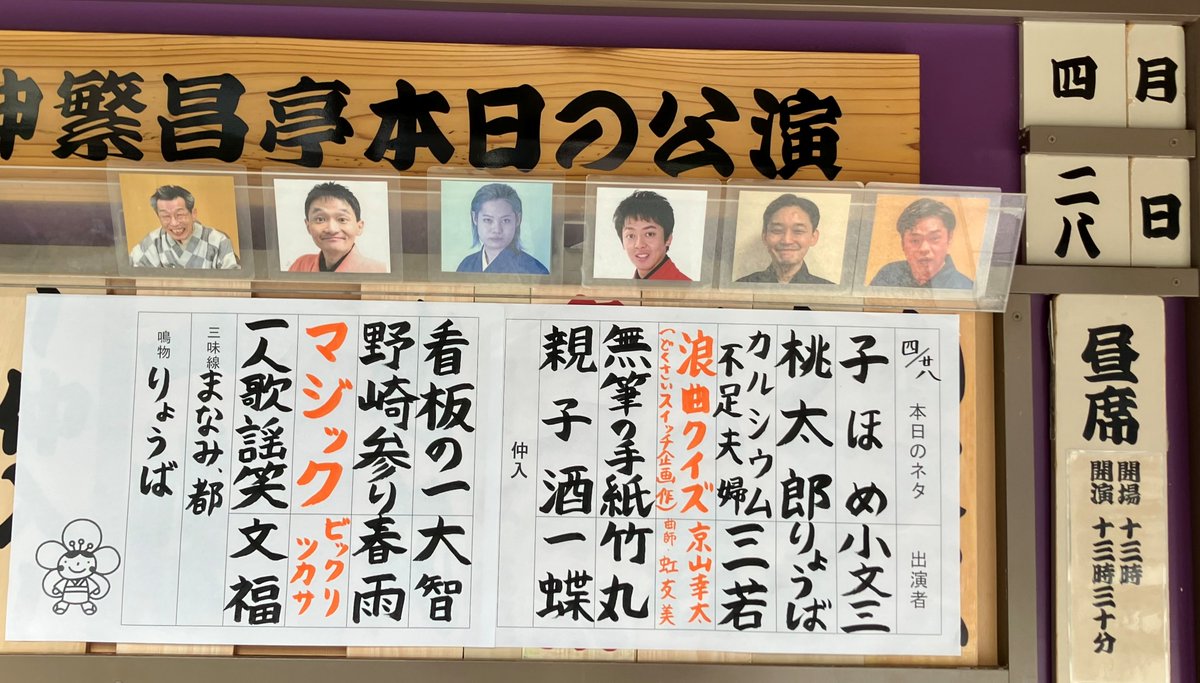 神繁昌亭本日の公演
四月
二八日
昼席
開場 十三時
開演 十三時三十分
四/廿八 本日のネタ 出演者
子ほめ 小文三
桃太郎 りょうば
カルシウム不足夫婦 三若
浪曲クイズ 京山幸太
(どくさいスイッチ企画 作) 曲師・虹友美
無筆の手紙 竹丸
親子酒 一蝶
仲入
看板の一 大智
野崎参り 春雨
マジック ビックリツカサ
一人歌謡笑 文福
三味線 まなみ、都
鳴物 りょうば